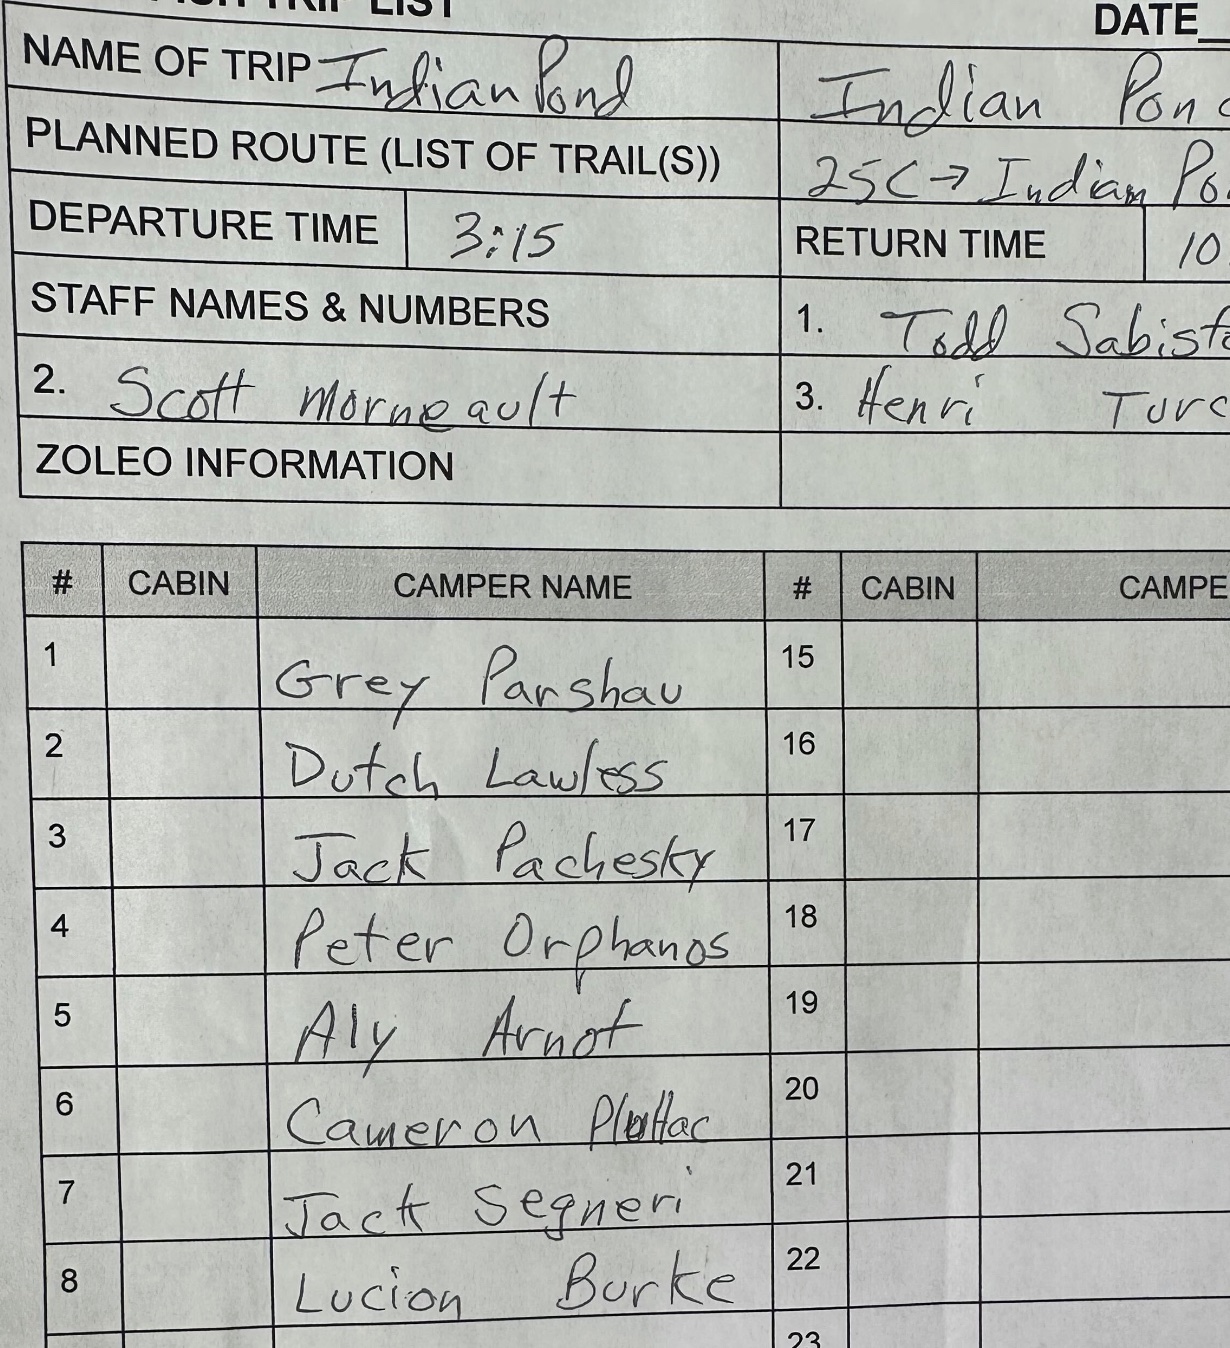 TRIP LIST
DATE
NAME OF TRIP Indian Pond Indian Pon
PLANNED ROUTE (LIST OF TRAIL(S)) 25C → Indian Po
DEPARTURE TIME 3:15 RETURN TIME 10
STAFF NAMES & NUMBERS 1. Todd Sabist
2. Scott Morneault 3. Henri Turc
ZOLEO INFORMATION
# CABIN CAMPER NAME # CABIN CAMPE
1 Grey Parshau 15
2 Dutch Lawless 16
3 Jack Pachesky 17
4 Peter Orphanos 18
5 Aly Arnot 19
6 Cameron 20
7 Jack Segneri 21
8 Lucion Burke 22
23